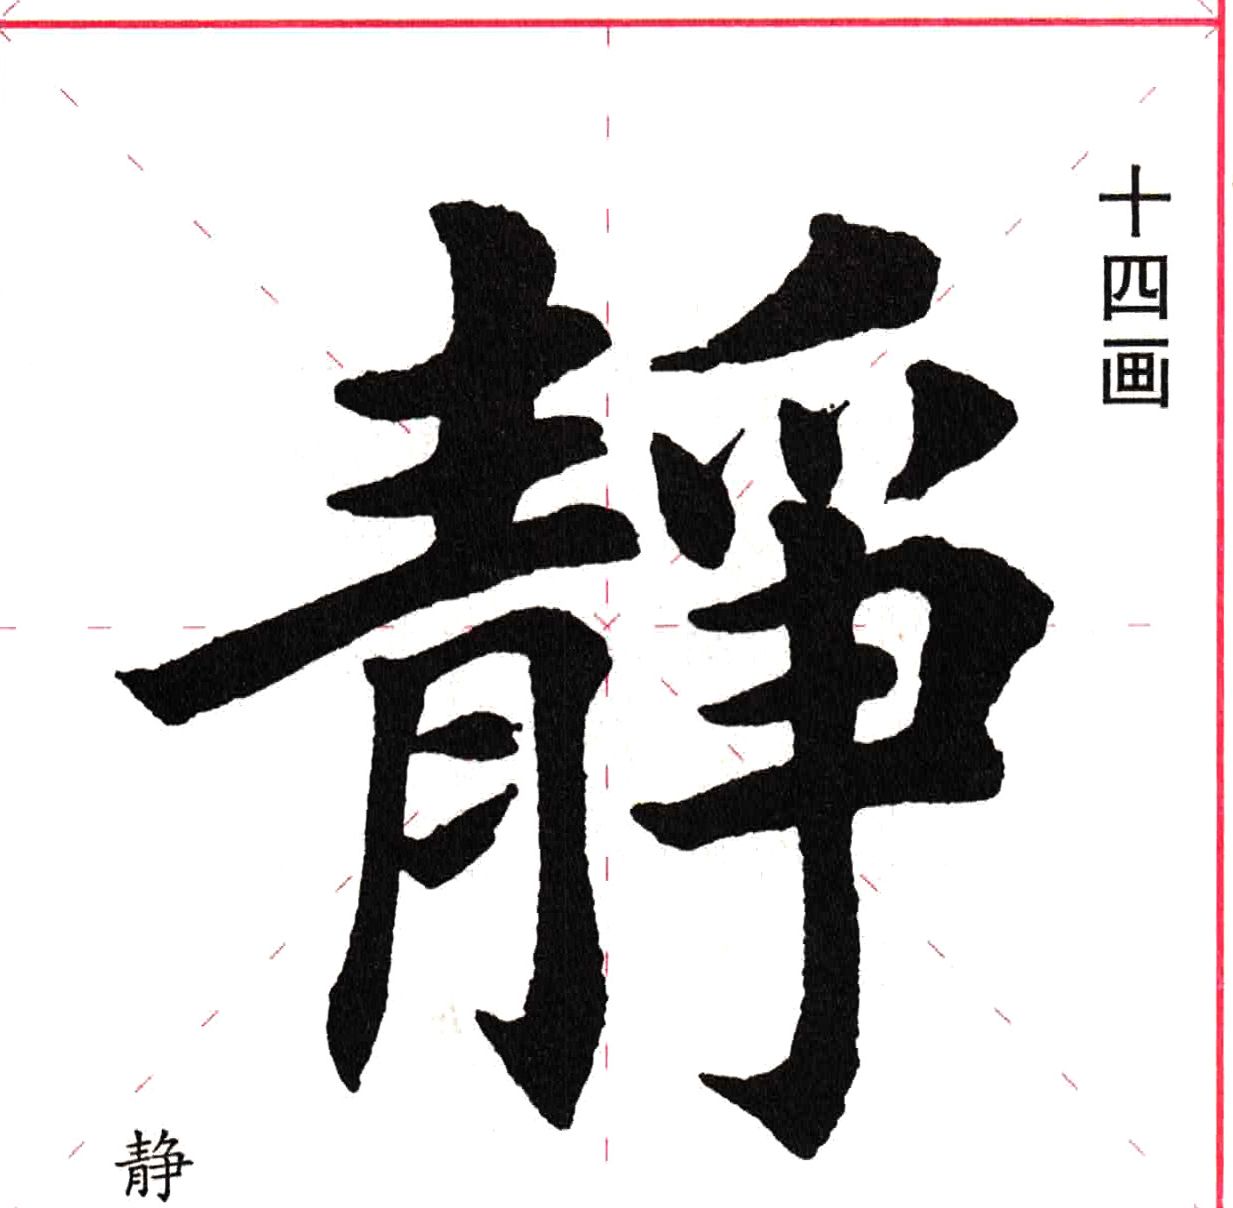 十四画
靜
静